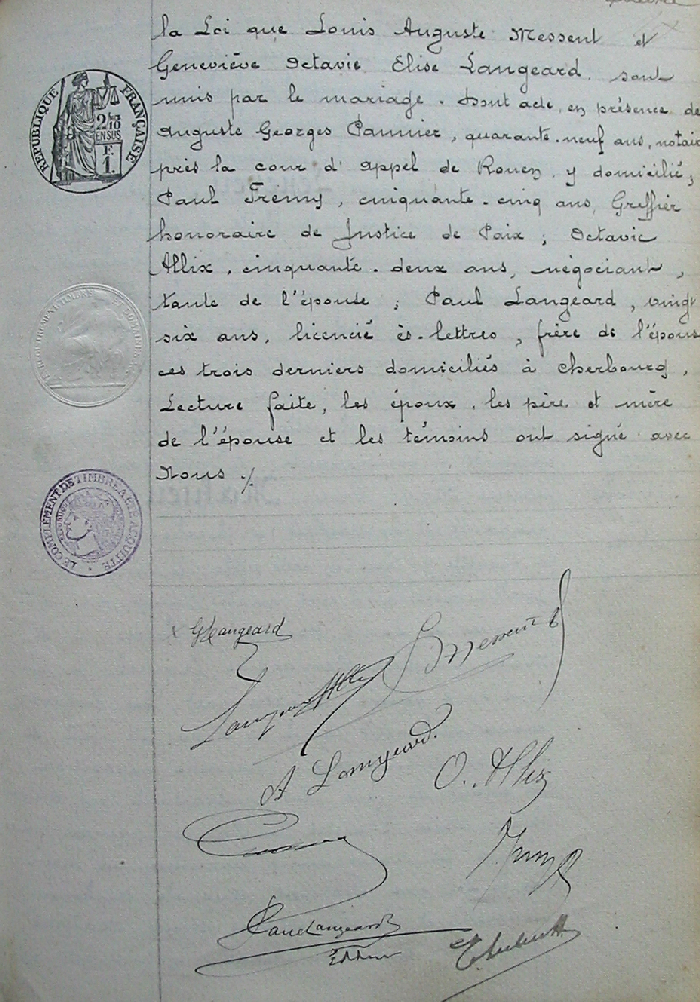 la Loi que Louis Auguste Messent et
Geneviève Octavie Elise Langeard sont
unis par le mariage. Dont acte, en présence de
Auguste Georges Pannier, quarante-neuf ans, notaire
près la cour d'appel de Rouen, y domicilié;
Paul Fremy, cinquante-cinq ans, Greffier
honoraire de Justice de Paix; Octavie
Allix, cinquante-deux ans, négociant,
tante de l'épouse; Paul Langeard, vingt
six ans, licencié ès-lettres, frère de l'épouse
ces trois derniers domiciliés à Cherbourg,
Lecture faite, les époux, les père et mère
de l'épouse et les témoins ont signé avec
Nous ./.
RÉPUBLIQUE FRANÇAISE
2/10
EN SUS
F
1.
LE COMPLÉMENT DE TIMBRE A ÉTÉ ACQUITTÉ
G Langeard
L Messent
A Langeard
O. Allix
Paul Langeard